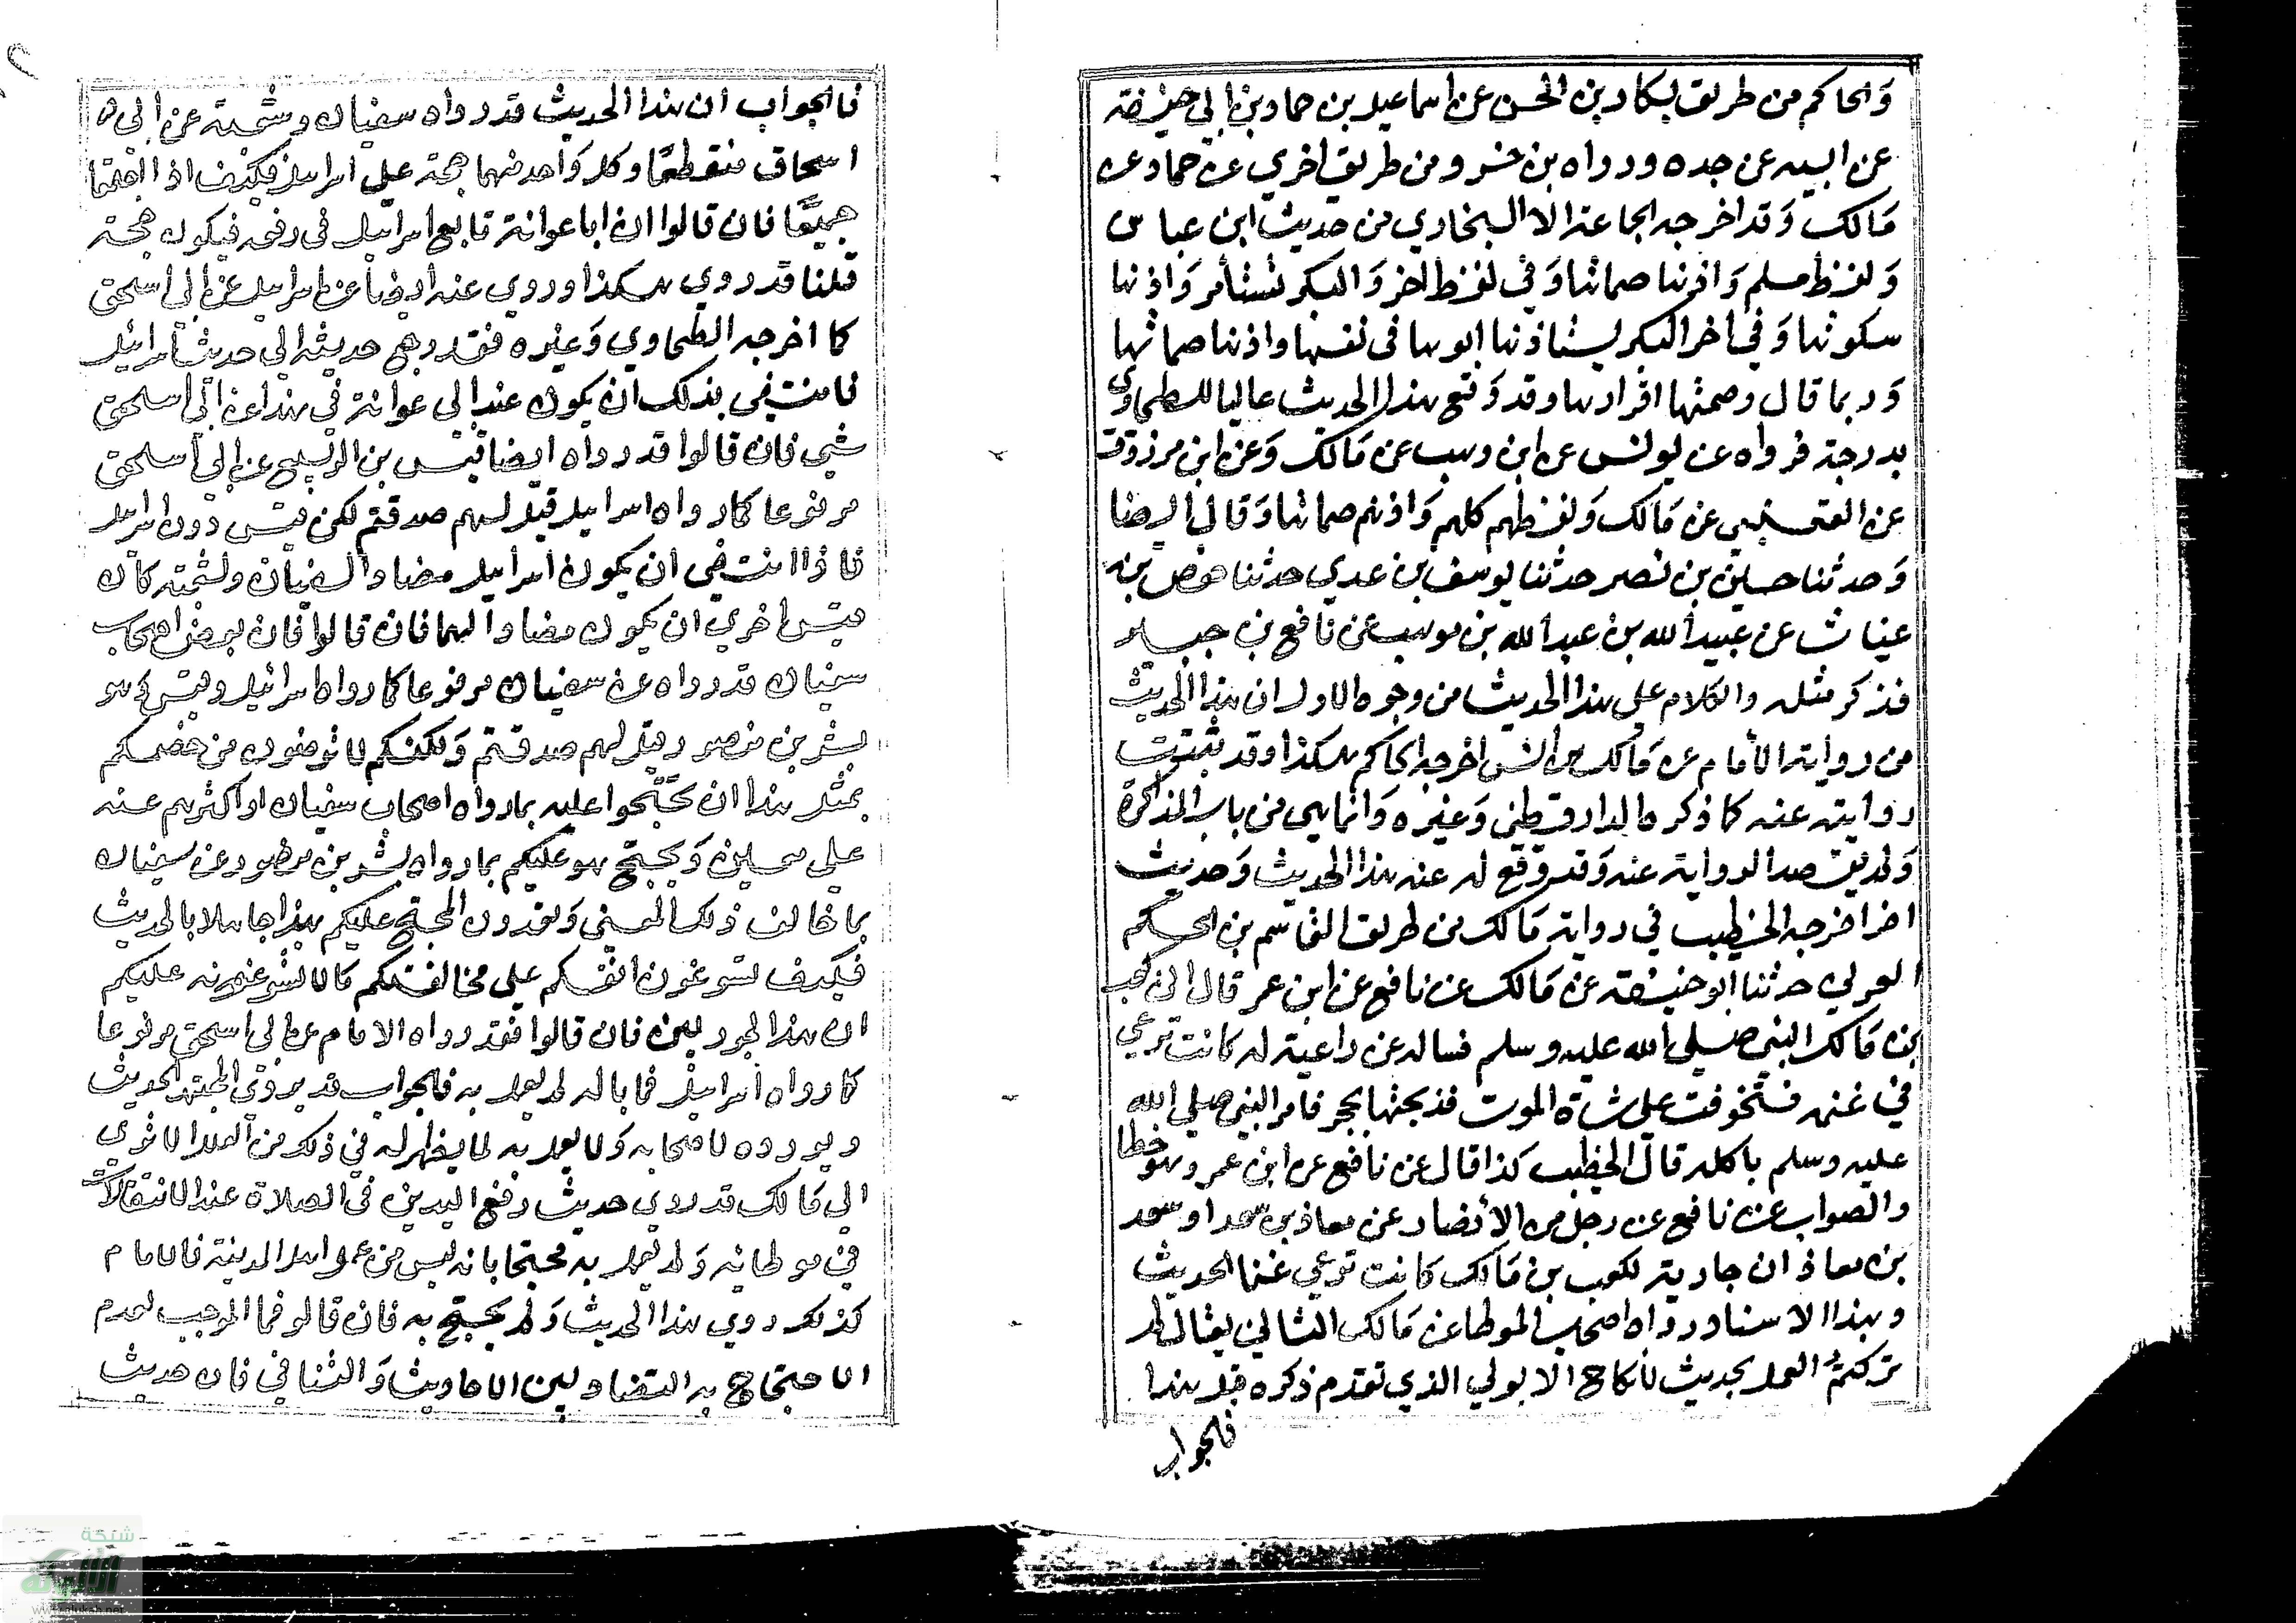 والحاكم من طريق بكار بن الحسن عن اسماعيل بن حماد بن ابي حنيفة
عن ابيه عن جده ورواه بن خسرو من طريق اخري عن حماد عن
مالك وقد اخرجه الجماعة الا البخاري من حديث ابن عباس
ولفظ مسلم واذنها صماتها وفي لفظ اخر والبكر تستأمر واذنها
سكوتها وفي اخر البكر يستاذنها ابوها في نفسها واذنها صماتها
وربما قال وصمتها اقرارها وقد وقع هذا الحديث عاليا للطحاوي
بدرجة فرواه عن يونس عن ابن وهب عن مالك وعن ابن مرزوق
عن القعنبي عن مالك ولفظهم كلهم واذنهم صماتها وقال ايضا
وحدثنا حسين بن نصر حدثنا يوسف بن عدي حدثنا حفص بن
غياث عن عبيد الله بن عبد الله بن موهب عن نافع بن جبير
فذكر مثله والكلام علي هذا الحديث من وجوه الاول ان هذا الحديث
من رواية الامام عن مالك بن انس اخرجه الحاكم هكذا وقد ثبتت
روايته عنه كما ذكره الدارقطني وغيره وانما هي من باب المذاكرة
ولم يقصد الرواية عنه وقد وقع له عنه هذا الحديث وحديث
اخر اخرجه الخطيب في رواية مالك من طريق القاسم بن الحكم
العرني حدثنا ابو حنيفة عن مالك عن نافع عن ابن عمر قال اتي كعب
بن مالك النبي صلي الله عليه وسلم فساله عن راعية له كانت ترعي
في غنمه فتخوفت علي شاة الموت فذبحتها بحجر فامر النبي صلي الله
عليه وسلم باكله قال الخطيب كذا قال عن نافع عن ابن عمر وهو خطا
والصواب عن نافع عن رجل من الانصار عن معاذ بن سعد او سعد
بن معاذ ان جارية لكعب بن مالك كانت ترعي غنما الحديث
وبهذا الاسناد رواه اصحاب الموطا عن مالك الثاني يقال لم
تركتم العمل بحديث لا نكاح الا بولي الذي تقدم ذكره قبل هذا
فالجواب
فالجواب ان هذا الحديث قد رواه سفيان وشعبة عن ابي
اسحاق منقطعا وكل واحد منهما حجة علي اسرائيل فكيف اذا اجتمعا
جميعا فان قالوا ان ابا عوانة تابع اسرائيل في رفعه فيكون حجة
قلنا قد روي هكذا وروي عنه ايضا عن اسرائيل عن ابي اسحق
كما اخرجه الطحاوي وغيره فقد رجع حديثه الي حديث اسرائيل
فانتفي بذلك ان يكون عند ابي عوانة في هذا عن ابي اسحق
شي فان قالوا قد رواه ايضا قيس بن الربيع عن ابي اسحق
مرفوعا كما رواه اسرائيل قيل لهم صدقتم لكن قيس دون اسرائيل
فاذا انتفي ان يكون اسرائيل مضادا لسفيان ولشعبة كان
قيس احري ان يكون مضادا لهما فان قالوا فان بعض اصحاب
سفيان قد رواه عن سفيان مرفوعا كما رواه اسرائيل وقيس وهو
بشر بن منصور قيل لهم صدقتم ولكنكم لا ترضون من خصمكم
بمثل هذا ان تحتجوا عليه بما رواه اصحاب سفيان او اكثرهم عنه
علي معني ويحتج هو عليكم بما رواه بشر بن منصور عن سفيان
بما خالف ذلك المعني وتعدون المحتج عليكم بهذا جاهلا بالحديث
فكيف تسوغون انفسكم علي مخالفتكم ما لا تسوغونه عليكم
ان هذا لجور بين فان قالوا فقد رواه الامام عن ابي اسحق مرفوعا
كما رواه اسرائيل فما باله لم يعمل به فالجواب قد يروي المجتهد الحديث
ويورده لاصحابه ولا يعمل به لما يظهر له في ذلك من العلل الا تري
الي مالك قد روي حديث رفع اليدين في الصلاة عند الانتقالات
في موطائه ولم يعمل به محتجا بانه ليس من عمل اهل المدينة فالامام
كذلك روي هذا الحديث ولم يحتج به فان قالوا فما الموجب لعدم
الاحتجاج به التضاد بين الاحاديث والتنافي فان حديث
شبكة
الألوكة
www.alukah.net